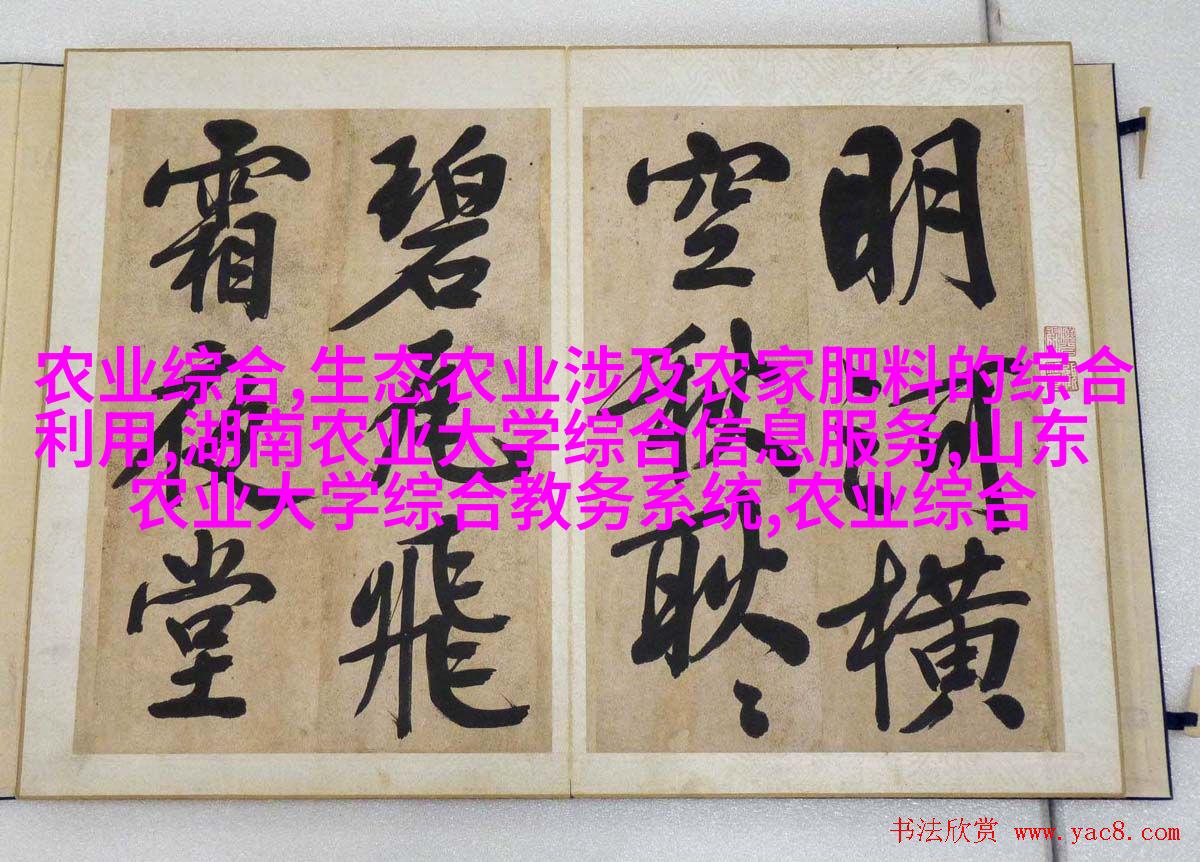 明河橫
空秋耿〻
碧瓦飛
霜夜堂
农业综合,生态农业涉及农家肥料的综合
利用,湖南农业大学综合信息服务,山东
农业大学综合教务系统,农业综合
书法欣赏 www.yac8.com